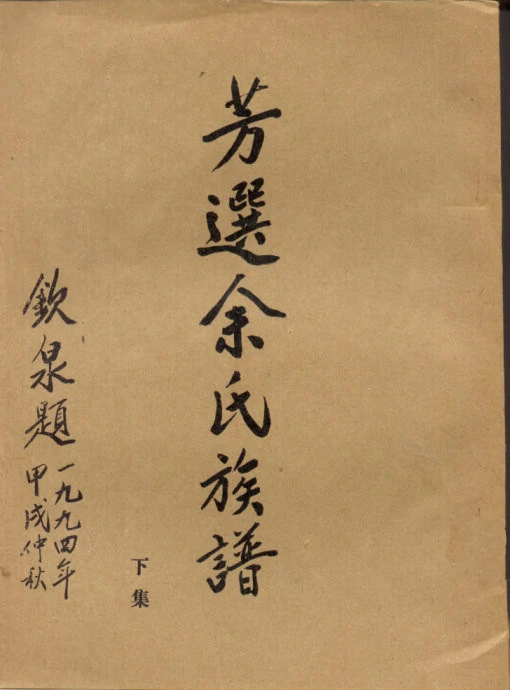 芳選余氏族譜
下集
欽泉題
一九九四年
甲戌仲秋